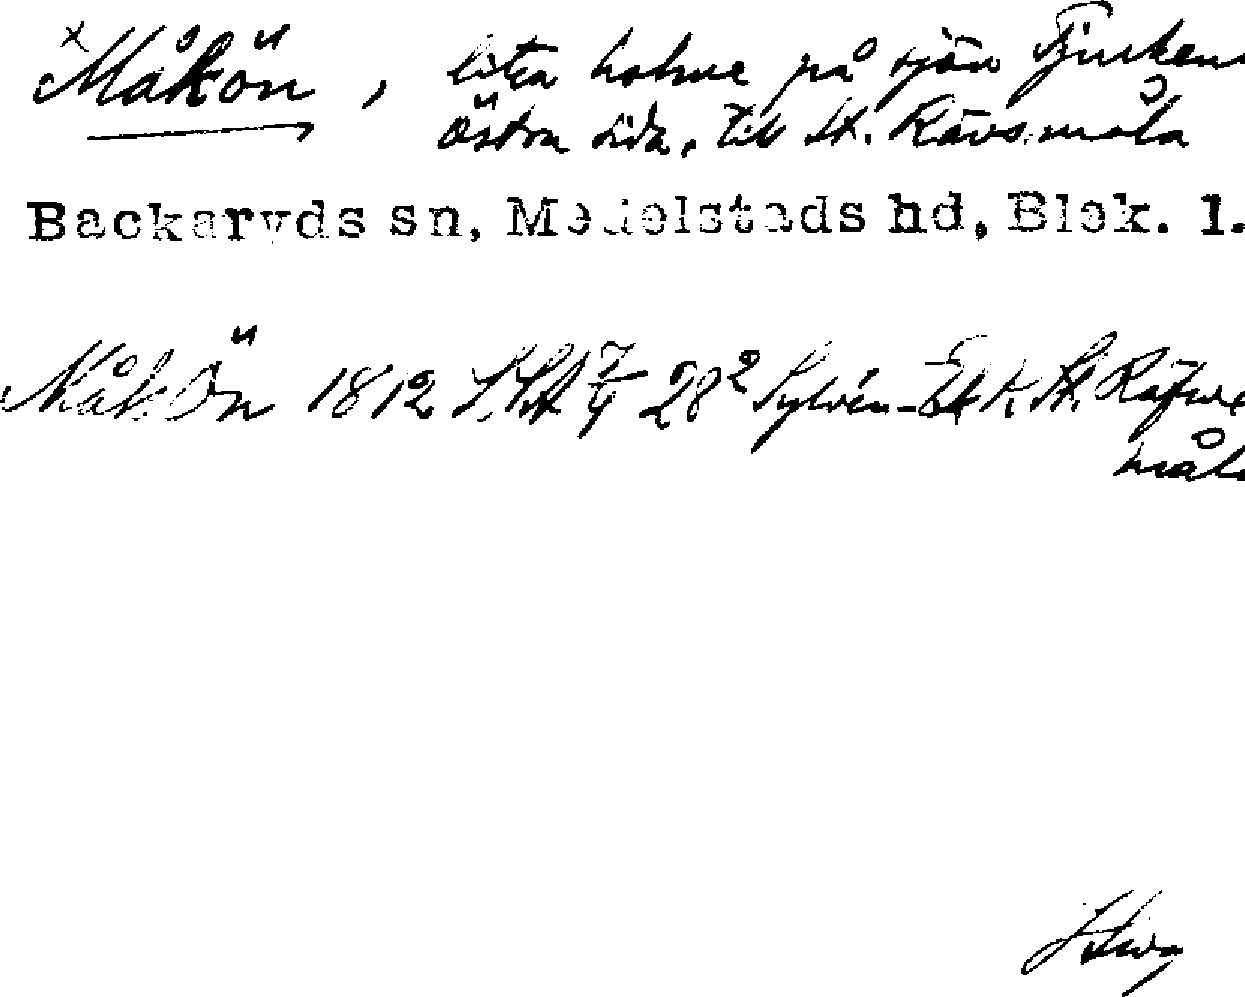 x Måkön, liten holme på sjön Tjurkens
östra sida, till St. Rävsmåla
Backaryds sn, Medelstads hd, Blek. l.
MåkÖn 1812 7/4 28² Sylvén-Ek K. St. Räfwe
måla